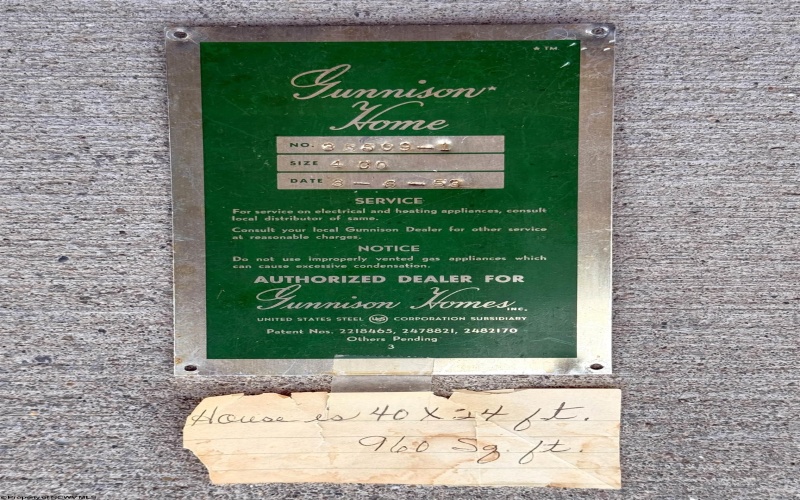 * TM
Gunnison*
Home
NO.
SIZE 4
DATE
SERVICE
For service on electrical and heating appliances, consult
local distributor of same.
Consult your local Gunnison Dealer for other service
at reasonable charges.
NOTICE
Do not use improperly vented gas appliances which
can cause excessive condensation.
AUTHORIZED DEALER FOR
Gunnison Homes, INC.
UNITED STATES STEEL USS CORPORATION SUBSIDIARY
Patent Nos. 2218465, 2478821, 2482170
Others Pending
3
House is 40 X 24 ft.
960 Sq. ft.